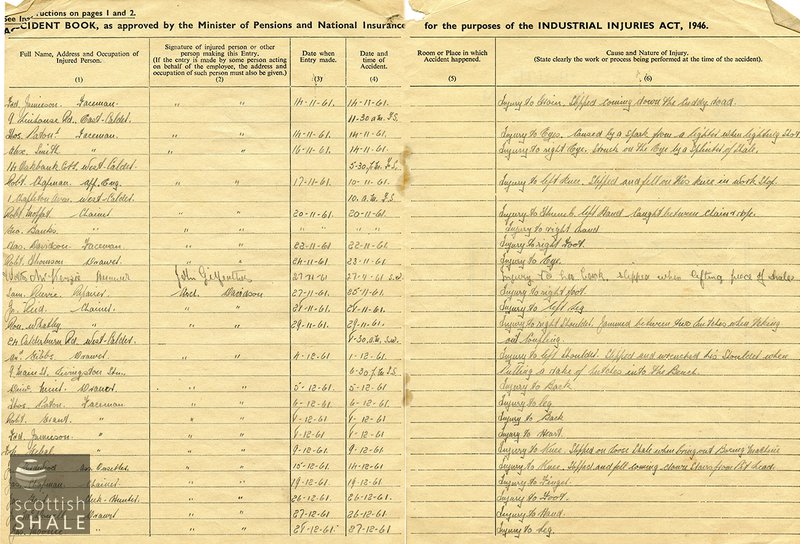 See Instructions on pages 1 and 2.
ACCIDENT BOOK, as approved by the Minister of Pensions and National Insurance for the purposes of the INDUSTRIAL INJURIES ACT, 1946.
Full Name, Address and Occupation of Injured Person.
(1)
Signature of injured person or other person making this Entry.
(If the entry is made by some person acting on behalf of the employee, the address and occupation of such person must also be given.)
(2)
Date when Entry made.
(3)
Date and time of Accident.
(4)
Room or Place in which Accident happened.
(5)
Cause and Nature of Injury.
(State clearly the work or process being performed at the time of the accident.)
(6)
Jamieson. Faceman. " " 14-11-61. 14-11-61. Injury to Slipped coming down the road.
9 Limehouse Rd. East-Calder. 11-30 a.m.
Thos. Paton Faceman. " " 14-11-61. 14-11-61. Injury to Eyes. Caused by a spark from a lighter when lighting Shot
Smith " " " 16-11-61. 14-11-61. Injury to right Eye. Struck on the Eye by a Splinter of Shale.
14 Oakbank Cott. West-Calder. 5-30 p.m.
Robt. Chapman. app. Eng. " " 17-11-61. 10-11-61. Injury to left Knee. Slipped and fell on his knee in Work Shop.
1 Mapleton Ave. West-Calder. 10. a.m.
Robt. Moffat. Chainer " " 20-11-61. 20-11-61. Injury to Thumb left Hand caught between chain & rope.
Geo. Banks. " " " " " Injury to right hand
Davidson. Faceman. " " 22-11-61. 22-11-61. Injury to right Foot.
Robt. Thomson Drawer " " 24-11-61. 23-11-61. Injury to Eye.
27-11-61 Injury to slipped when lifting piece of shale
Sam. Repairer Arch. Davidson 27-11-61. 25-11-61. Injury to right foot.
Chainer " " 28-11-61. 28-11-61. Injury to left leg
Ron. Whatley " " " 29-11-61. 29-11-61. Injury to right Shoulder. Jammed between two hutches when
24 Calderburn Rd. West-Calder. 8-30 a.m. out Coupling.
Wm. Gibbs Drawer " " 4-12-61. 1-12-61. Injury to left shoulder. Slipped and wrenched his Shoulder when
9 Main St. Livingston Stn. 6-30 p.m. Pulling a rake of hutches into the Bench.
Drawer " " 5-12-61. 5-12-61. Injury to Back
Thos. Paton. Faceman " " 6-12-61. 6-12-61. Injury to leg
Robt. Grant " " " 8-12-61 8-12-61. Injury to Back
Jamieson. " " " 8-12-61 8-12-61. Injury to Heart.
" " " 9-12-61. 9-12-61. Injury to Knee. Slipped on loose Shale when bringing out Boring Machine
" " 15-12-61. 14-12-61. Injury to Knee. Slipped and fell coming down Stairs from Pit head.
Chapman Chainer " " 19-12-61 19-12-61. Injury to Finger.
" " 26-12-61. 26-12-61. Injury to Foot.
Drawer " " 27-12-61 26-12-61. Injury to Hand
" " 28-12-61. 27-12-61 Injury to leg.
scottish
SHALE